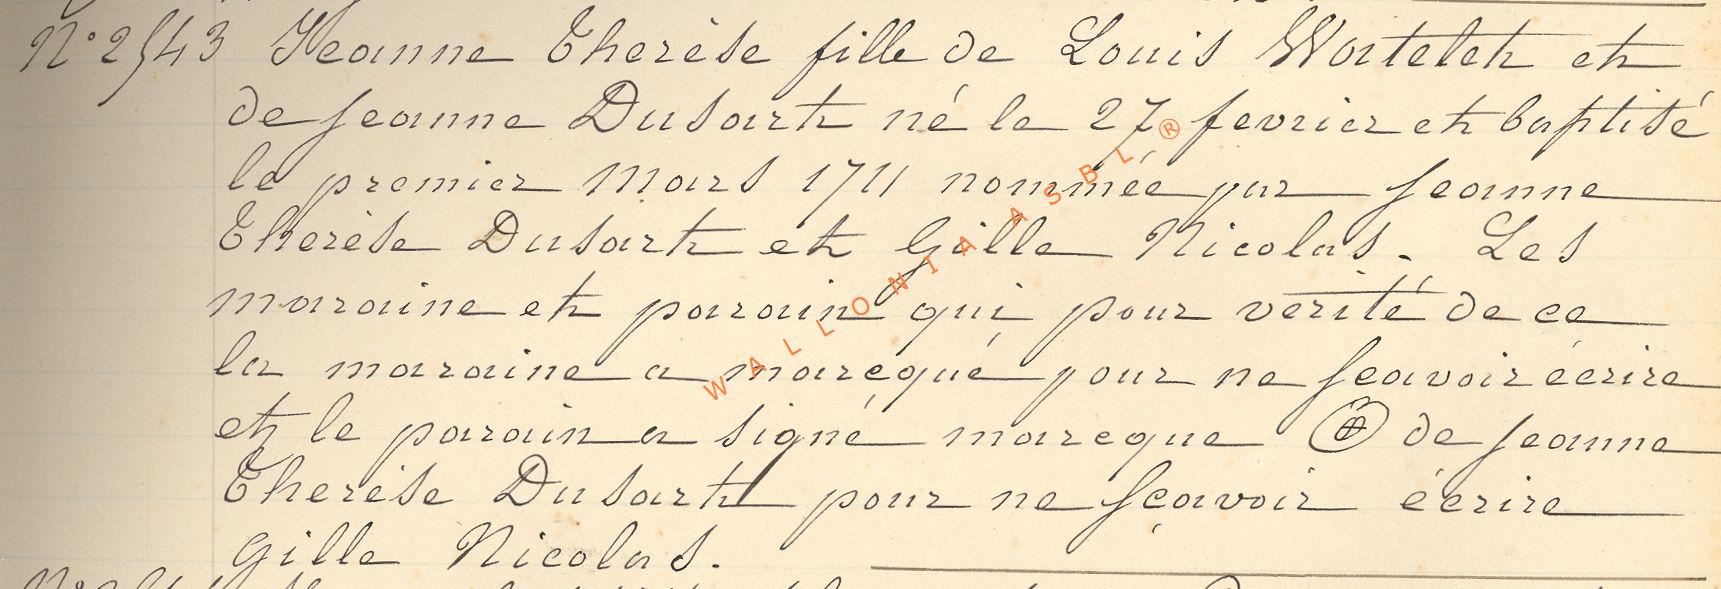 N° 2543 Jeanne Therèse fille de Louis Wartelet et
de Jeanne Dusart né le 27 fevrier et baptisé
le premier Mars 1711 nommée par Jeanne
Therèse Dusart et Gille Nicolas. Les
maraine et parain qui pour verité de ce
la maraine a marcqué pour ne sçavoir écrire
et le parain a signé marcque ⊕ de Jeanne
Therèse Dusart pour ne sçavoir écrire
Gille Nicolas.
WALLONIA ASBL ®